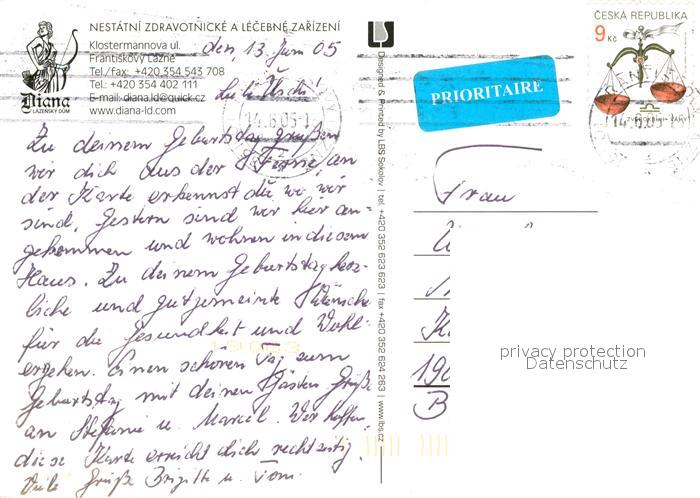 NESTÁTNÍ ZDRAVOTNICKÉ A LÉČEBNÉ ZAŘÍZENÍ
Klostermannova ul.
Františkovy Lázně
Tel./fax: +420 354 543 708
Tel.: +420 354 402 111
E-mail: diana.ld@quick.cz
www.diana-ld.com
Diana
LÁZEŇSKÝ DŮM
den, 13. Juni 05
Zu deinem Geburtstag grüßen
wir dich aus der Ferne, an
der Karte erkennst du, wo wir
sind. Gestern sind wir hier an-
gekommen und wohnen in diesem
Haus. Zu deinem Geburtstag herz-
liche und gutgemeinte Wünsche
für die Gesundheit und Wohl-
ergehen. Einen schönen Tag zum
Geburtstag mit deinen Gästen Grüße
an Stefanie u. Marcel. Wir hoffen,
diese Karte erreicht dich rechtzeitig.
Viele Grüße Brigitte u. Tom.
Designed & Printed by LBS Sokolov | tel. +420 352 623 623 | fax +420 352 624 263 | www.lbs.cz
PRIORITAIRE
ČESKÁ REPUBLIKA
9 Kč
14.6.05
Frau
190
B
privacy protection
Datenschutz